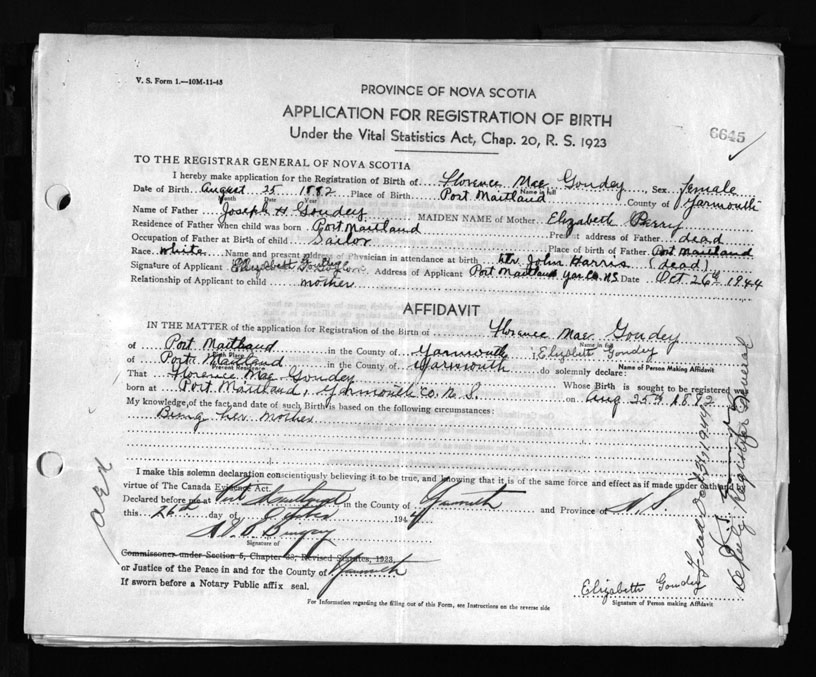 V. S. Form 1.—10M-11-43
PROVINCE OF NOVA SCOTIA
APPLICATION FOR REGISTRATION OF BIRTH
6645
Under the Vital Statistics Act, Chap. 20, R. S. 1923
TO THE REGISTRAR GENERAL OF NOVA SCOTIA
I hereby make application for the Registration of Birth of Florence Mae Goudey Sex female
Name in full
Date of Birth August 25 1882 Place of Birth Port Maitland County of Yarmouth
Month Date Year
Name of Father Joseph H Goudey MAIDEN NAME of Mother Elizabeth Perry
Residence of Father when child was born Port Maitland Present address of Father dead
Occupation of Father at Birth of child Sailor Place of Birth of Father Port Maitland
Race white Name and present address of Physician in attendance at birth Dr. John Harris (dead)
Signature of Applicant Elizabeth Address of Applicant Port Maitland Yar. Co. N.S. Date Oct 26th 1944
Relationship of Applicant to child mother
AFFIDAVIT
IN THE MATTER of the application for Registration of the Birth of Florence Mae Goudey
Name in full
of Port Maitland in the County of Yarmouth, Elizabeth Goudey
Birth Place Name of Person Making Affidavit
of Port Maitland in the County of Yarmouth do solemnly declare:
Present Residence
That Florence Mae Goudey Whose Birth is sought to be registered
born at Port Maitland, Yarmouth Co. N. S. on Aug 25th 1882
My knowledge of the fact and date of such Birth is based on the following circumstances:
Being her mother
I make this solemn declaration conscientiously believing it to be true, and knowing that it is of the same force and effect as if made under oath and
virtue of The Canada Evidence Act.
Declared before me at Port Maitland in the County of Yarmouth and Province of N. S.
this 26th day of October 1944
Signature of
Commissoner under Section 5, Chapter 48, Revised Statutes, 1923,
or Justice of the Peace in and for the County of Yarmouth
If sworn before a Notary Public affix seal.
Elizabeth Goudey
Signature of Person making Affidavit
For Information regarding the filling out of this Form, see Instructions on the reverse side
Deputy Registrar General